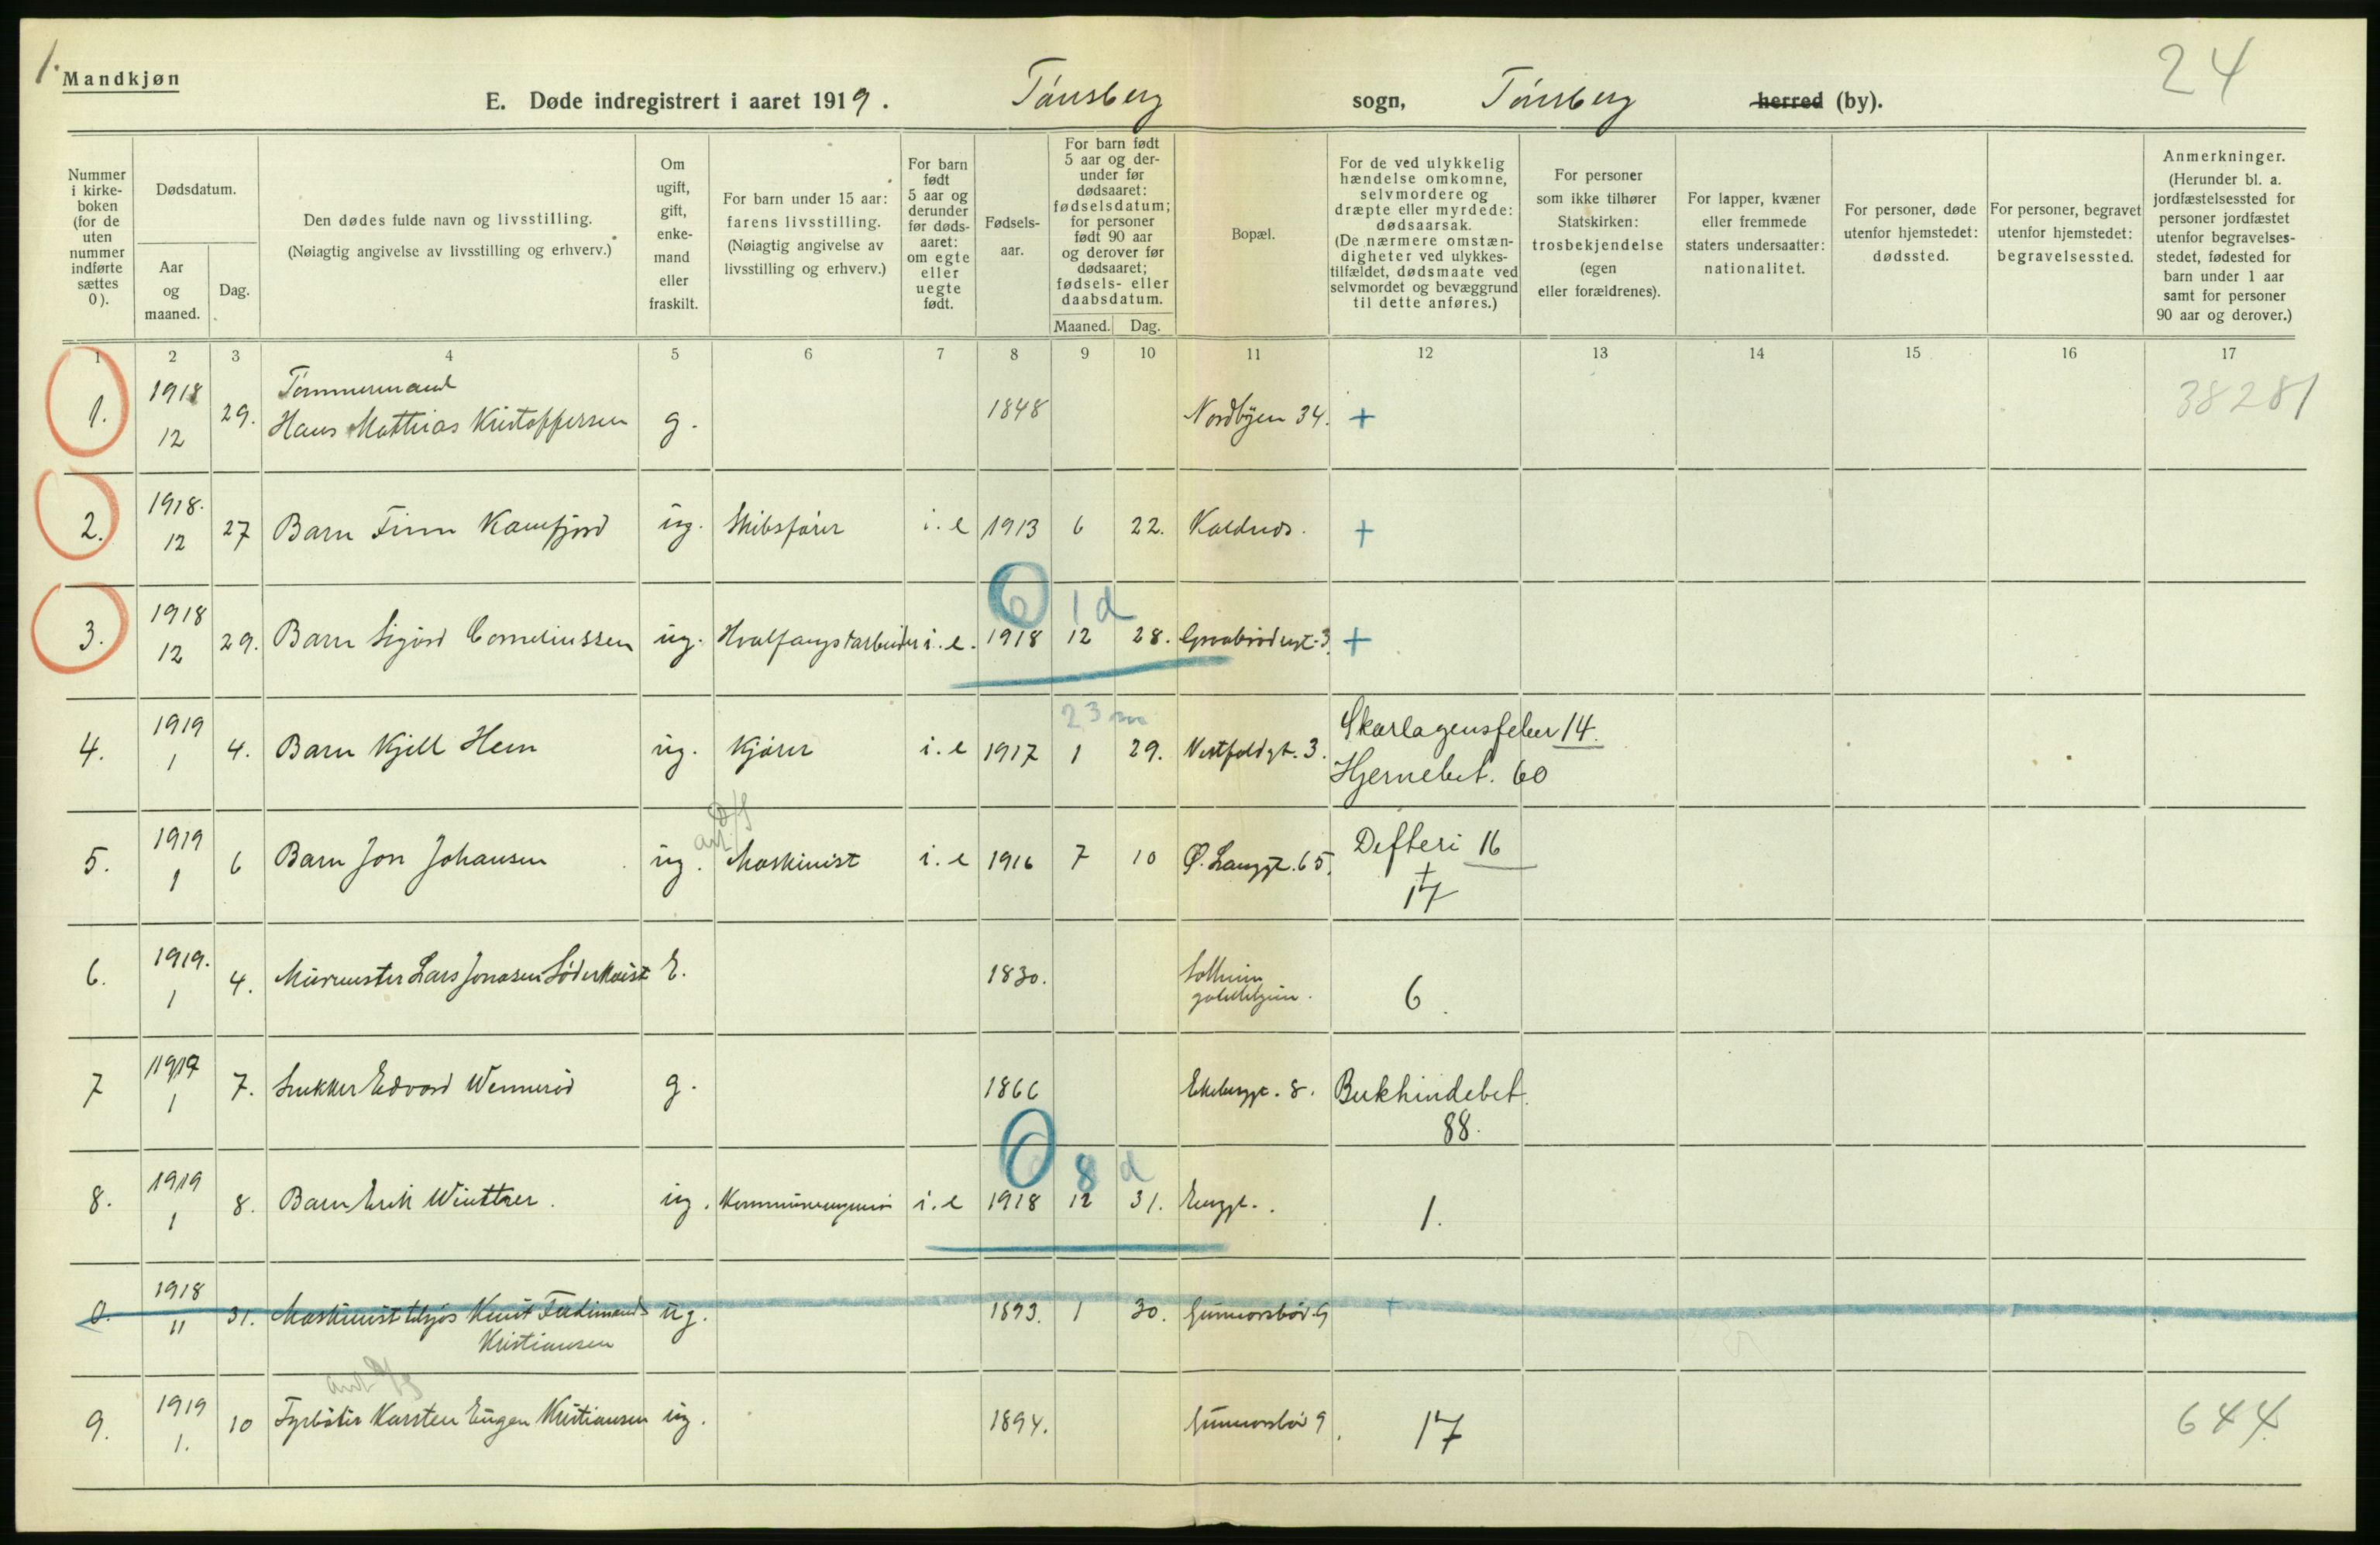 1.
Mandkjøn
24
E. Døde indregistrert i aaret 1919. Tønsberg sogn, Tønsberg herred (by).
Nummer i kirke-boken (for de uten nummer indførte sættes 0).
Dødsdatum.
Aar og maaned.
Dag.
Den dødes fulde navn og livsstilling.
(Nøiagtig angivelse av livsstilling og erhverv.)
Om ugift, gift, enke-mand eller fraskilt.
For barn under 15 aar: farens livsstilling.
(Nøiagtig angivelse av livsstilling og erhverv.)
For barn født 5 aar og derunder før døds-aaret: om egte eller uegte født.
Fødsels-aar.
For barn født 5 aar og der-under før dødsaaret: fødselsdatum; for personer født 90 aar og derover før dødsaaret; fødsels- eller daabsdatum.
Maaned. Dag.
Bopæl.
For de ved ulykkelig hændelse omkomne, selvmordere og dræpte eller myrdede: dødsaarsak.
(De nærmere omstæn-digheter ved ulykkes-tilfældet, dødsmaate ved selvmordet og bevæggrund til dette anføres.)
For personer som ikke tilhører Statskirken: trosbekjendelse (egen eller forældrenes).
For lapper, kvæner eller fremmede staters undersaatter: nationalitet.
For personer, døde utenfor hjemstedet: dødssted.
For personer, begravet utenfor hjemstedet: begravelsessted.
Anmerkninger.
(Herunder bl. a. jordfæstelsessted for personer jordfæstet utenfor begravelses-stedet, fødested for barn under 1 aar samt for personer 90 aar og derover.)
1 2 3 4 5 6 7 8 9 10 11 12 13 14 15 16 17
1. 1918 12 29. Tømmermand
Hans Mathias Kristoffersen g. 1848 Nordbyen 34. + 38281
2. 1918. 12 27 Barn Finn Kamfjord ug. Skibsfører i. e 1913 6 22. Kaldnes. +
6 1 d
3. 1918 12 29. Barn Sigurd Corneliussen ug. Hvalfangstarbeider i. e. 1918 12 28. Graabrødregt. 3. +
23 m
4. 1919 1 4. Barn Kjell Hem ug. Kjører i. e 1917 1 29. Vestfoldgt. 3. Skarlagensfeber 14.
Hjernebet. 60
5. 1919 1 6 Barn Jon Johansen ug. Maskinist i. e 1916 7 10 Ø. Langgt. 65. Difteri 16
+
17
6. 1919. 1 4. Murmester Lars Jonasen Söderkvist E. 1830. 6
7 1919 1 7. Snekker Edvard Wennerød g. 1866 Ekebergt. 8. Bukhindebet.
88.
8 d
8. 1919 1 8. Barn Erik Winttner. ug. Kommuneingeniør i. e 1918 12 31. Enggt. 1.
0. 1918 11 31. Maskinist tilsjøs Knut Ferdinand
Kristiansen ug. 1893. 1 30. Gunnarsbø. 9 +
9. 1919 1. 10 Fyrbøter Karsten Eugen Kristiansen ug. 1894. Gunnarsbø 9. 17 644